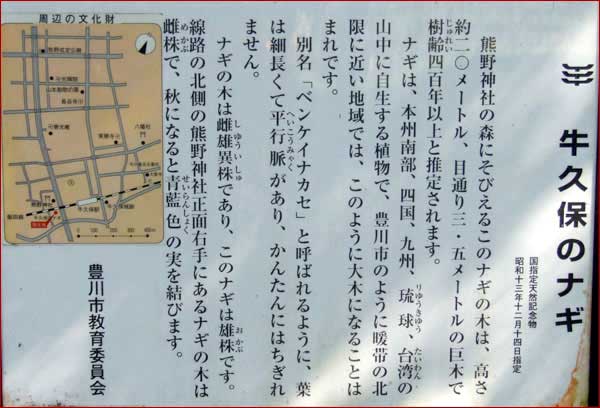 牛久保のナギ
国指定天然記念物
昭和十三年十二月十四日指定
熊野神社の森にそびえるこのナギの木は、高さ
約二〇メートル、目通り三・五メートルの巨木で
樹齢四百年以上と推定されます。
じゅれい
ナギは、本州南部、四国、九州、琉球、台湾の
りゅうきゅう
たいわん
山中に自生する植物で、豊川市のように暖帯の北
限に近い地域では、このように大木になることは
まれです。
別名「ベンケイナカセ」と呼ばれるように、葉
は細長くて平行脈があり、かんたんにはちぎれ
へいこうみゃく
ません。
ナギの木は雌雄異株であり、このナギは雄株です。
しゆういしゅ
おかぶ
線路の北側の熊野神社正面右手にあるナギの木は
雌株で、秋になると青藍色の実を結びます。
めかぶ
せいらんしょく
豊川市教育委員会
周辺の文化財
牛久保駅
飯田線